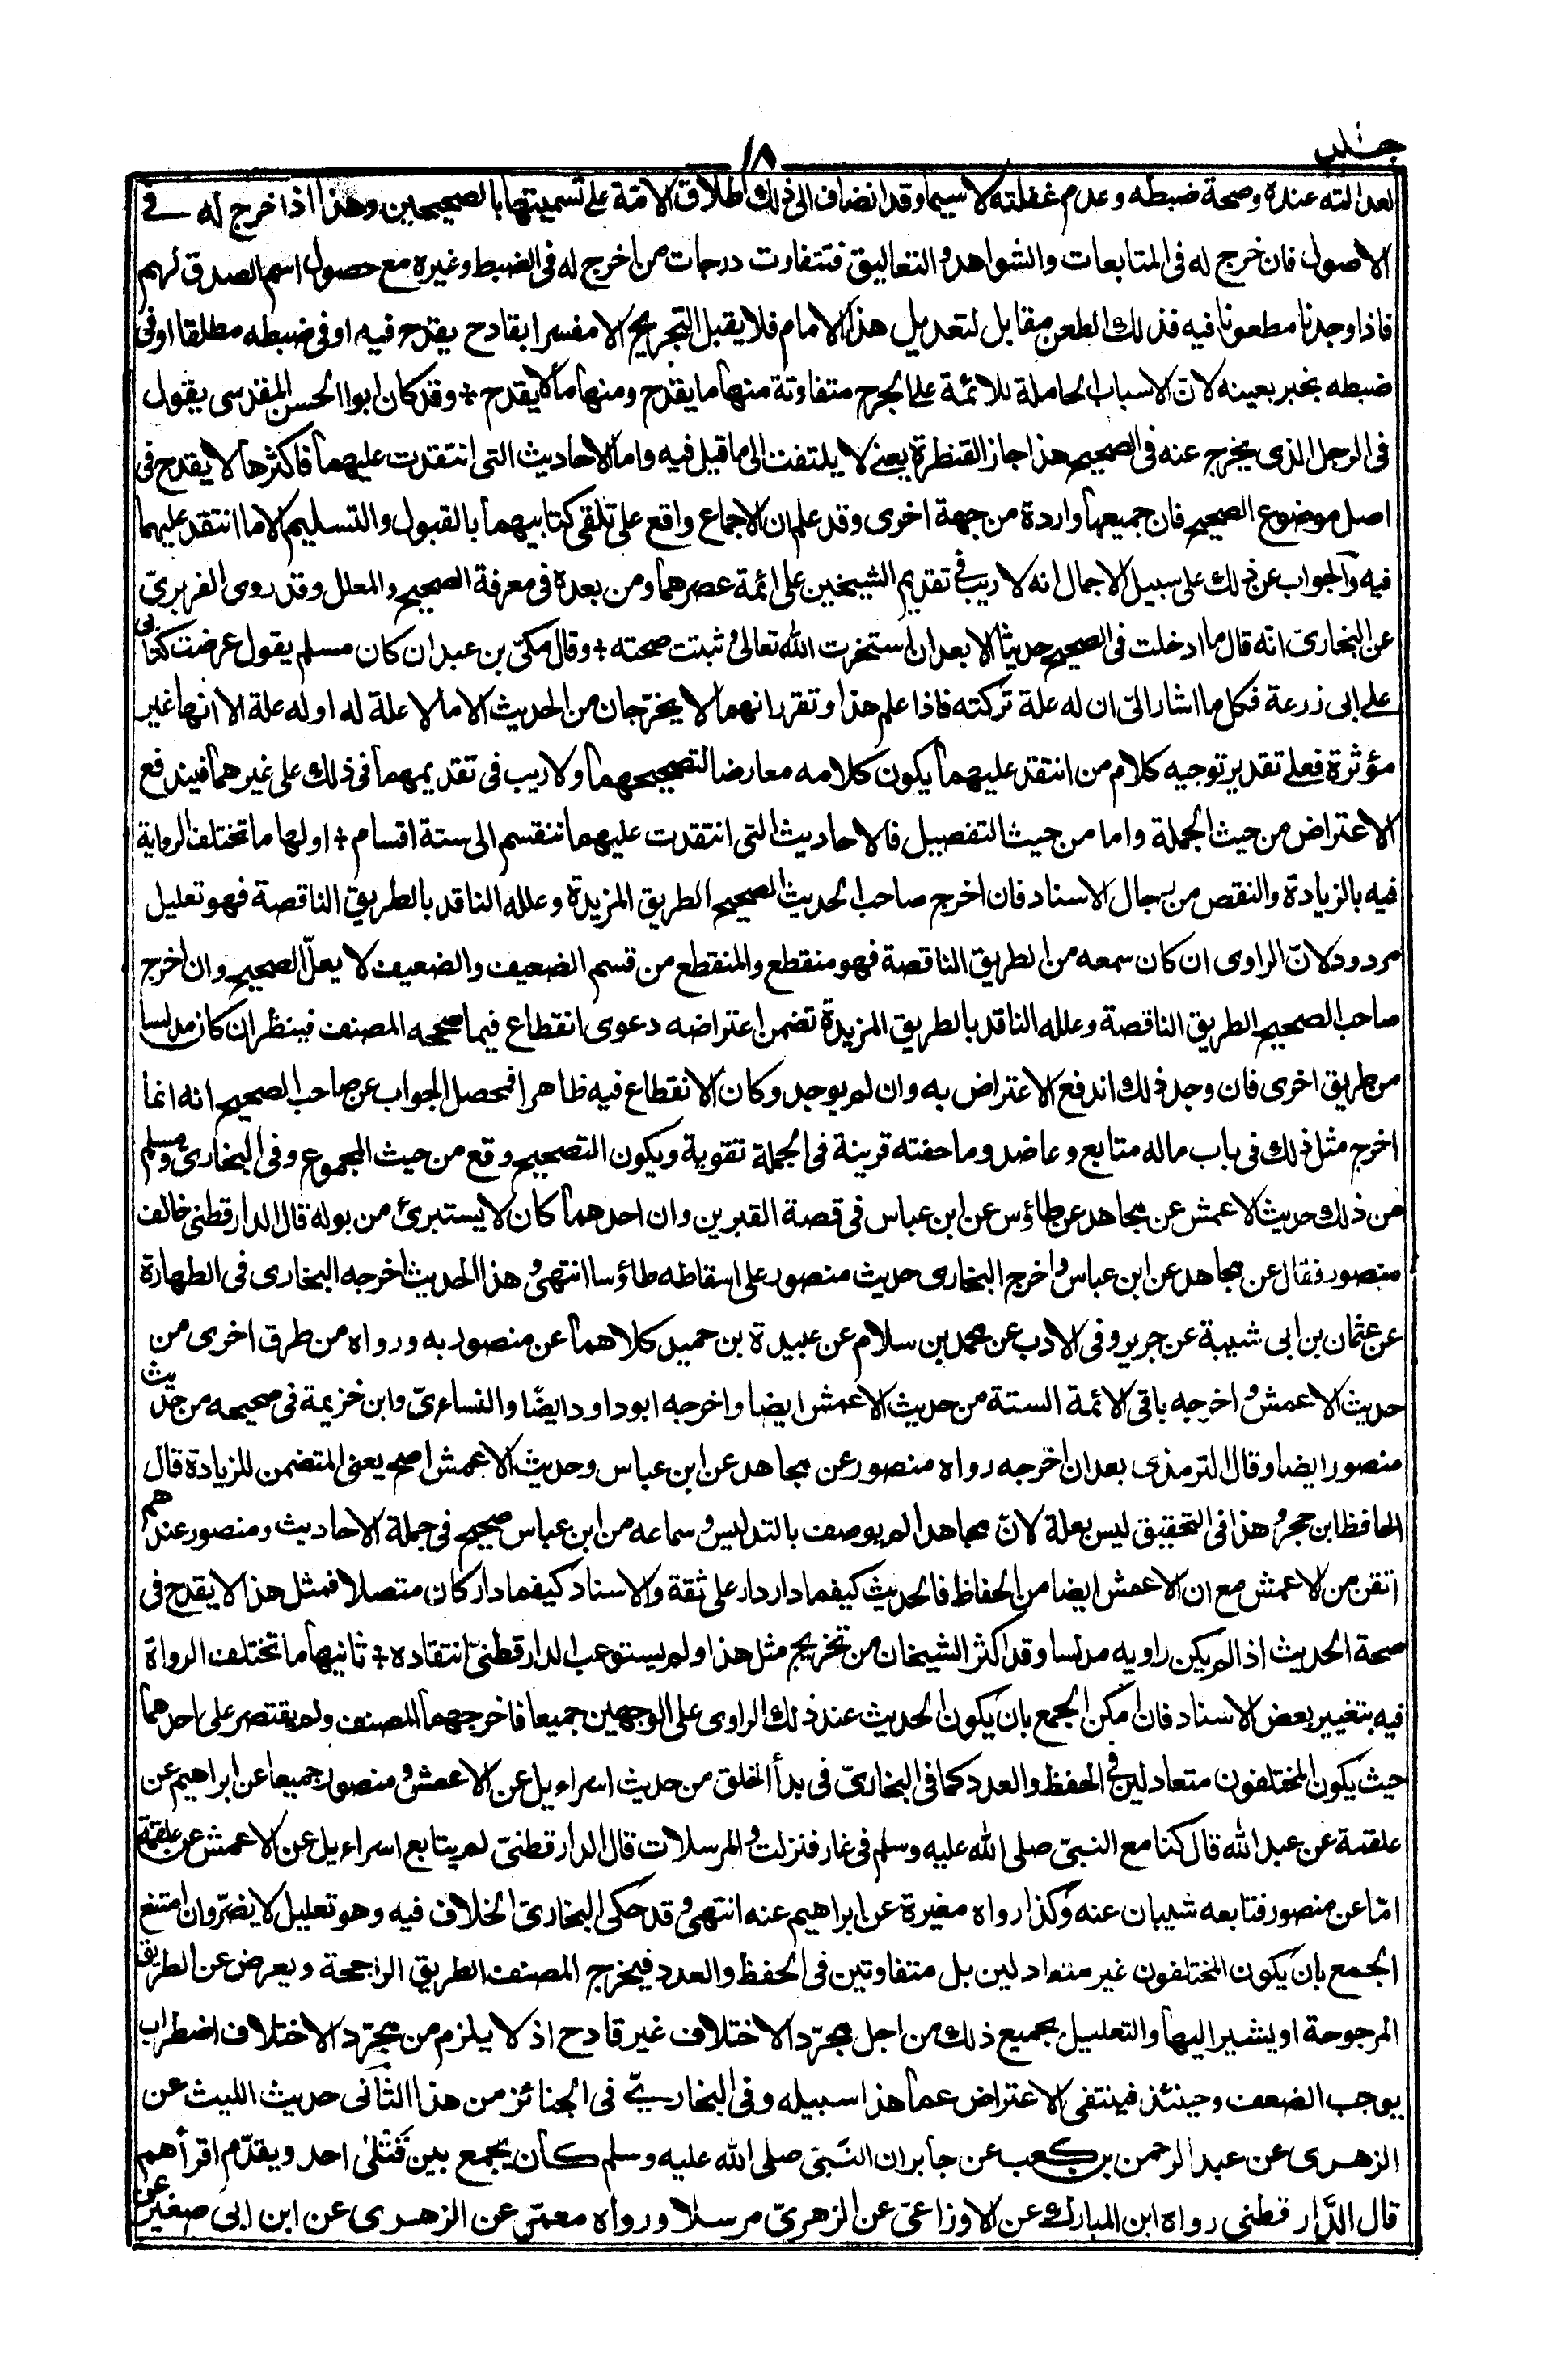 ١٨
لعدالته عنده وصحة ضبطه وعدم غفلته لا سيما وقد انضاف الى ذلك اطلاق الامة على تسميتها بالصحيحين وهذا اذا خرج له في
الاصول فان خرج له فى المتابعات والشواهد والتعاليق فتتفاوت درجات من اخرج له فى الضبط وغيره مع حصول اسم الصدق لهم
فاذا وجدنا مطعونا فيه فذلك الطعن مقابل لتعديل هذا الامام فلا يقبل التجريح الا مفسرا بقادح يقدح فيه او فى ضبطه مطلقا او فى
ضبطه بخبر بعينه لانّ الاسباب الحاملة للائمة على الجرح متفاوتة منها ما يقدح ومنها ما لا يقدح + وقد كان ابوا الحسن المقدسى يقول
فى الرجل الذى يخرج عنه فى الصحيح هذا جاز القنطرة يعنے لا يلتفت الى ما قيل فيه واما الاحاديث التى انتقدت عليهما فاكثرها لا يقدح فى
اصل موضوع الصحيح فان جميعها واردة من جهة اخرى وقد علم ان الاجماع واقع على تلقى كتابيهما بالقبول والتسليم الا ما انتقد عليهما
فيه وآلجواب عن ذلك على سبيل الاجمال انه لا ريب في تقديم الشيخين على ائمة عصرهما ومن بعده فى معرفة الصحيح والمعلل وقد روى الفربرىّ
عن البخارىّ انّه قال ما ادخلت فى الصحيح حديثا الا بعد ان استخرت الله تعالى وثبتت صحته + وقال مكىّ بن عبدان كان مسلم يقول عرضت كتابى
على ابى زرعة فكل ما اشار الىّ ان له علة تركته فاذا علم هذا وتقرر انهما لا يخرّجان من الحديث الا ما لا علة له او له علة الا انها غير
مؤثرة فعلى تقدير توجيه كلام من انتقد عليهما يكون كلامه معارضا لتصحيحهما ولا ريب فى تقديمهما فى ذلك على غيرهما فيندفع
الاعتراض من حيث الجملة واما من حيث التفصيل فالاحاديث التى انتقدت عليهما تنقسم الى ستة اقسام + اولها ما تختلف الرواية
فيه بالزيادة والنقص من رجال الاسناد فان اخرج صاحب الحديث الصحيح الطريق المزيدة وعلله الناقد بالطريق الناقصة فهو تعليل
مردود لانّ الراوى ان كان سمعه من الطريق الناقصة فهو منقطع والمنقطع من قسم الضعيف والضعيف لا يعلّ الصحيح وان اخرج
صاحب الصحيح الطريق الناقصة وعلله الناقد بالطريق المزيدة تضمن اعتراضه دعوى انقطاع فيما صححه المصنف فينظر ان كان مدلسا
من طريق اخرى فان وجد ذلك اندفع الاعتراض به وان لم يوجد وكان الانقطاع فيه ظاهرا فمحصل الجواب عن صاحب الصحيح انه انما
اخرج مثل ذلك فى باب ماله متابع وعاضد وما حفته قرينة فى الجملة تقوية ويكون التصحيح وقع من حيث المجموع وفى البخارى ومسلم
من ذلك حديث الاعمش عن مجاهد عن طاؤس عن ابن عباس فى قصة القبرين وان احدهما كان لا يستبرئ من بوله قال الدارقطنى خالف
منصور فقال عن مجاهد عن ابن عباس واخرج البخارى حديث منصور على اسقاطه طاؤسا انتهى وهذا الحديث اخرجه البخارى فى الطهارة
عن عثمان بن ابى شيبة عن جرير وفى الادب عن محمد بن سلام عن عبيدة بن حميد كلاهما عن منصور به ورواه من طرق اخرى من
حديث الاعمش واخرجه باقى الائمة الستة من حديث الاعمش ايضا واخرجه ابوداود ايضًا والنساءىّ وابن خزيمة فى صحيحه من حديث
منصور ايضا وقال الترمذى بعد ان اخرجه رواه منصور عن مجاهد عن ابن عباس وحديث الاعمش اصح يعنى المتضمن للزيادة قال
الحافظ ابن حجر وهذا فى التحقيق ليس بعلة لانّ مجاهدا لم يوصف بالتدليس وسماعه من ابن عباس صحيح فى جملة الاحاديث ومنصور عندهم
اتقن من الاعمش مع ان الاعمش ايضا من الحفاظ فالحديث كيفما دار دار على ثقة والاسناد كيفما دار كان متصلا فمثل هذا لا يقدح فى
صحة الحديث اذا لم يكن راويه مدلسا وقد اكثر الشيخان من تخريج مثل هذا ولم يستوعب الدارقطنىّ انتقاده + ثانيها ما تختلف الرواة
فيه بتغيير بعض الاسناد فان امكن الجمع بان يكون الحديث عند ذلك الراوى على الوجهين جميعا فاخرجهما المصنف ولم يقتصر على احدهما
حيث يكون المختلفون متعادلين في الحفظ والعدد كما فى البخارىّ فى بدأ الخلق من حديث اسراءيل عن الاعمش ومنصور جميعا عن ابراهيم عن
علقمة عن عبد الله قال كنا مع النبىّ صلى الله عليه وسلم فى غار فنزلت والمرسلات قال الدارقطنىّ لم يتابع اسراءيل عن الاعمش عن علقمة
امّا عن منصور فتابعه شيبان عنه وكذا رواه مغيرة عن ابراهيم عنه انتهى وقد حكى البخارىّ الخلاف فيه وهو تعليل لا يضرّ وان امتنع
الجمع بان يكون المختلفون غير متعادلين بل متفاوتين فى الحفظ والعدد فيخرج المصنف الطريق الراجحة ويعرض عن الطريق
المرجوحة او يشير اليها والتعليل بجميع ذلك من اجل مجرّد الاختلاف غير قادح اذ لا يلزم من مجرّد الاختلاف اضطراب
يوجب الضعف وحينئذ فينتفى الاعتراض عما هذا سبيله وفى البخارىّ فى الجنائز من هذا الثانى حديث الليث عن
الزهرى عن عبد الرحمن بن كعب عن جابر ان النّبىّ صلى الله عليه وسلم كان يجمع بين قَتْلىٰ احد ويقدّم اقرأهم
قال الدّارقطنى رواه ابن المبارك عن الاوزاعىّ عن الزهرىّ مرسلا ورواه معمر عن الزهرى عن ابن ابى صغير عن